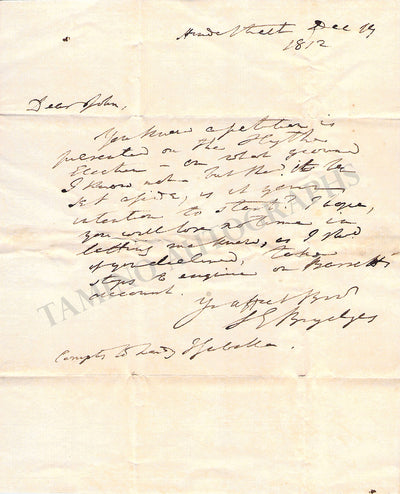 Hinde Street Dec 19
1812
Dear John,
You know a petition is
presented on the Hythe
Election - on what ground
I know not - but shd. it be
set aside, is it your
intention to stand? I hope,
you will lose no time in
letting me know, as I shd.
if you declined, take
steps to enquire on Barrett's
account.
Yr affect Bror
S E Brydges
Compts to Lady Isabella.
TAMINO AUTOGRAPHS